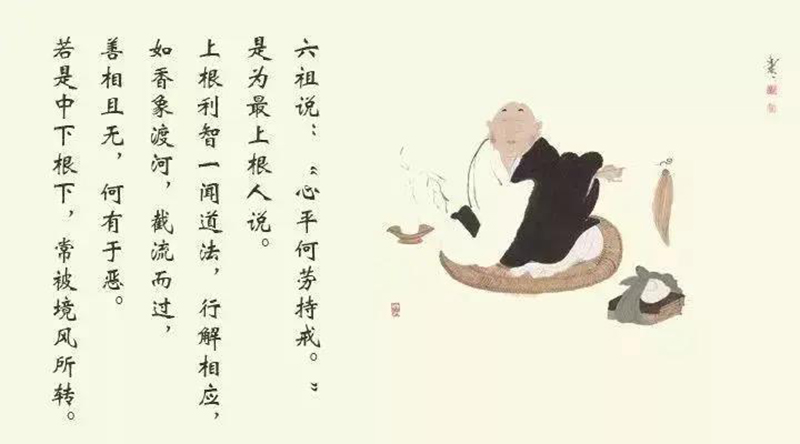 六祖说：“心平何劳持戒。”
是为最上根人说。
上根利智一闻道法，行解相应，
如香象渡河，截流而过，
善相且无，何有于恶。
若是中下根下，常被境风所转。